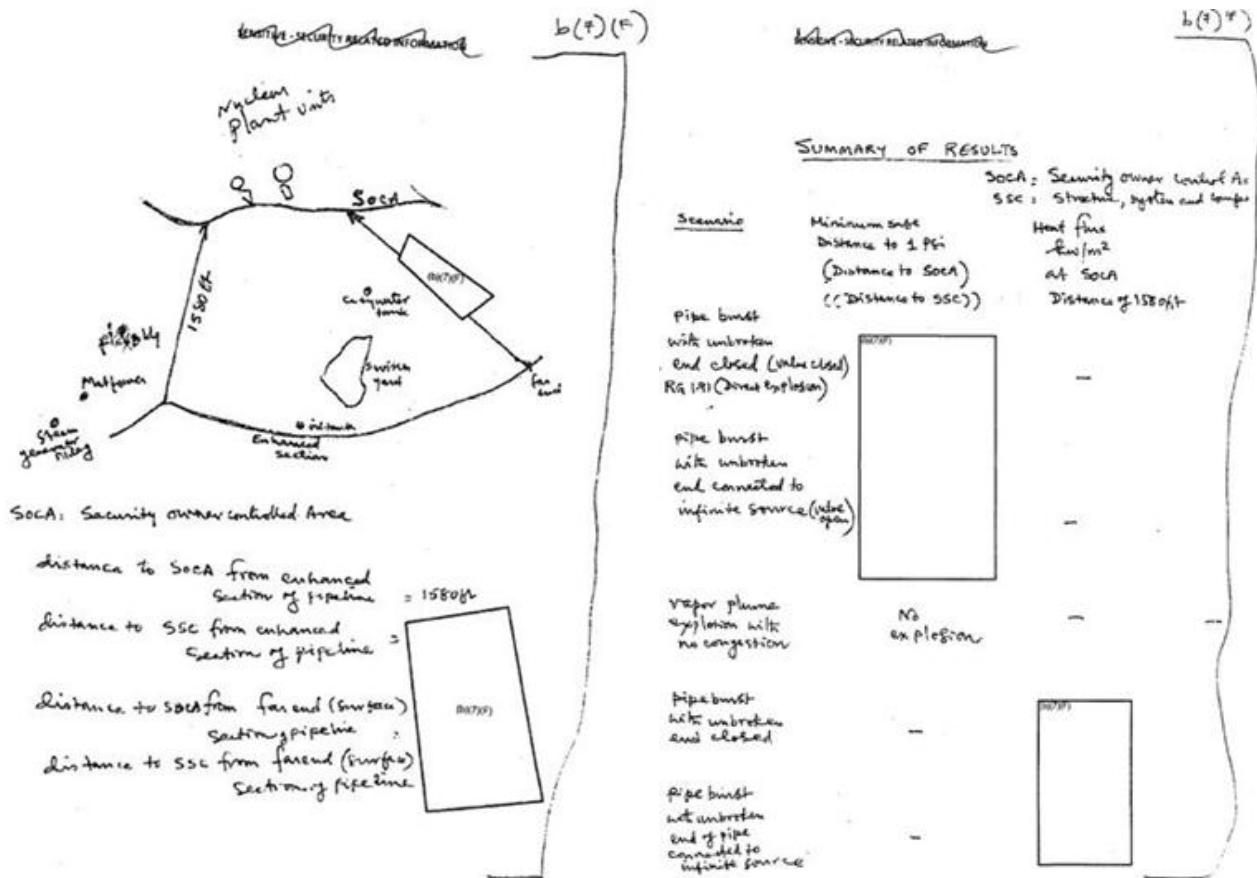 b(7)(F)
SENSITIVE - SECURITY RELATED INFORMATION
Nuclear
Plant units
SOCA
(b)(7)(F)
1580 ft
tank
Switch
yard
far
end
Meteorological
Steam
generator
Enhanced
section
SOCA: Security owner controlled Area
distance to SOCA from enhanced
section of pipeline = 1580 ft
distance to SSC from enhanced
section of pipeline =
(b)(7)(F)
distance to SOCA from far end (surface)
section of pipeline
distance to SSC from far end (surface)
section of pipeline
b(7)F
SENSITIVE - SECURITY RELATED INFORMATION
SUMMARY OF RESULTS
SOCA: Security owner control
SSC: Structure, system and
Scenario
Minimum safe
Distance to 1 Psi
(Distance to SOCA)
((Distance to SSC))
Heat flux
kw/m²
at SOCA
Distance of 1580 ft
Pipe burst
with unbroken
end closed (valve closed)
RG 1.91 (Direct explosion)
(b)(7)(F)
–
pipe burst
with unbroken
end connected to
infinite source (valve
open)
–
vapor plume
explosion with
no congestion
No
explosion
–
–
pipe burst
with unbroken
end closed
–
(b)(7)(F)
pipe burst
with unbroken
end of pipe
connected to
infinite source
–